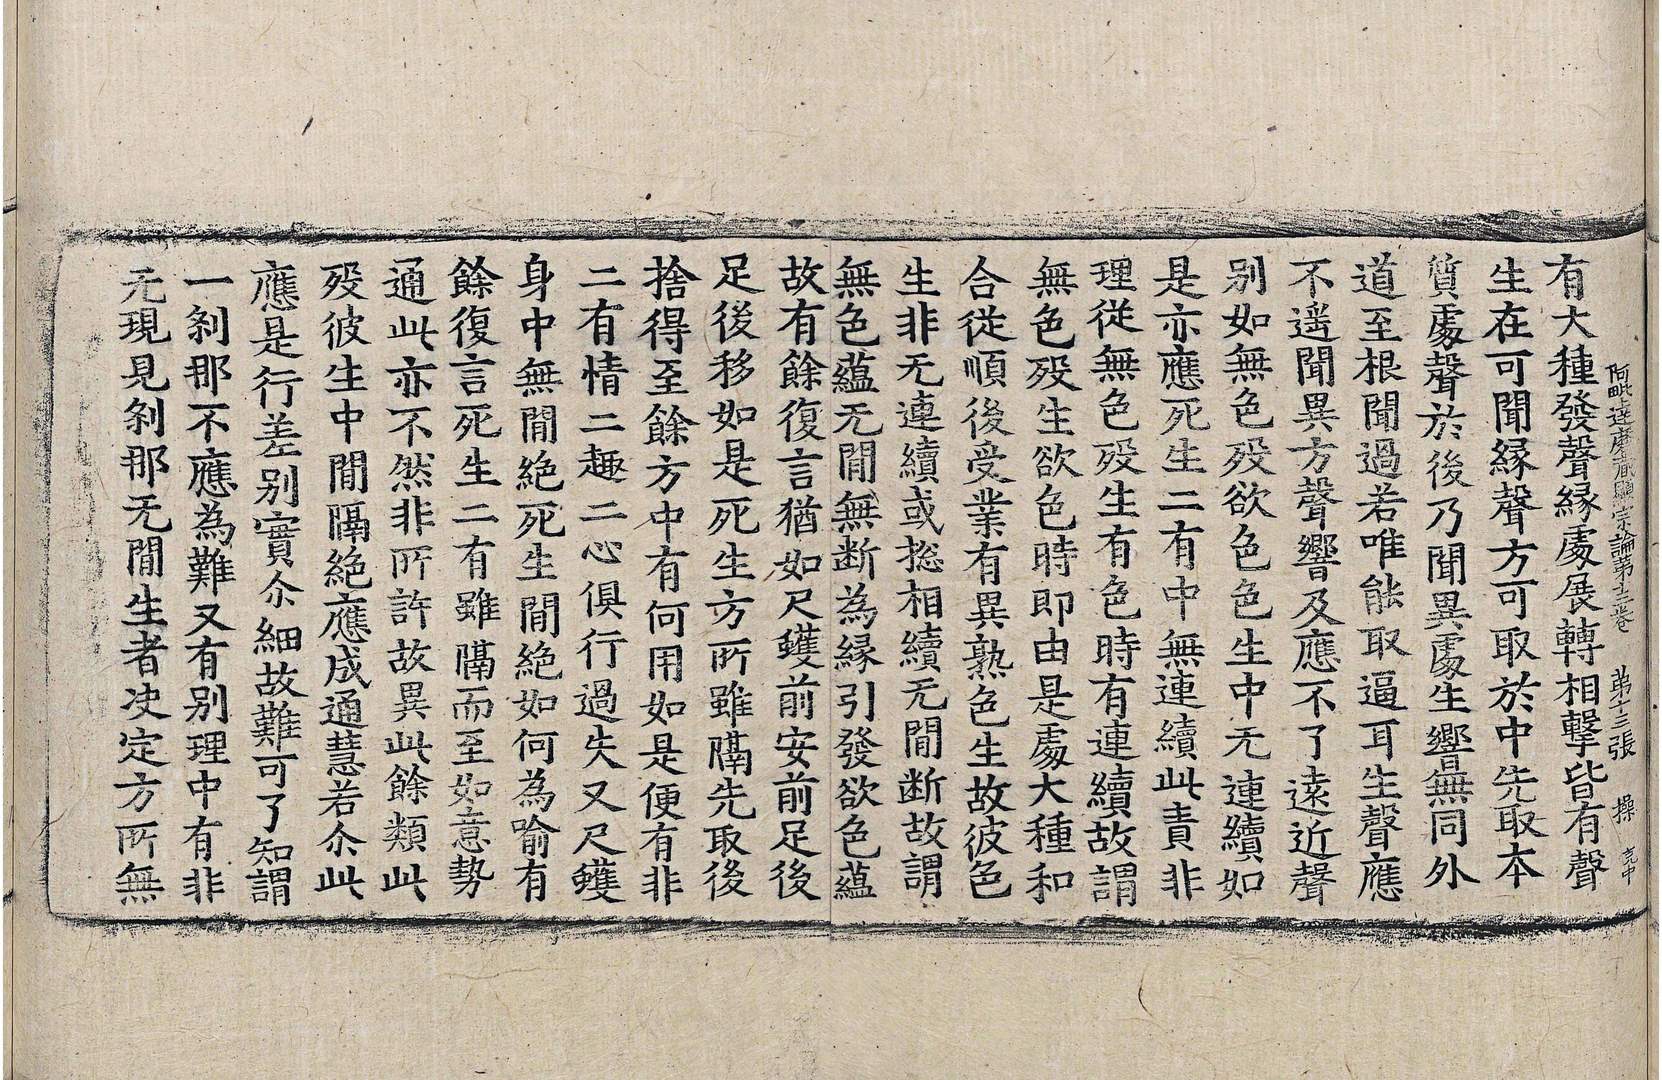 阿毗達磨藏顯宗論第十三卷 第十三張 操 克中
有大種發聲縁處展轉相擊皆有聲
生在可聞縁聲方可取於中先取本
質處聲於後乃聞異處生響無同外
道至根聞過若唯能取逼耳生聲應
不遥聞異方聲響及應不了遠近聲
别如無色歿欲色色生中无連續如
是亦應死生二有中無連續此責非
理從無色歿生有色時有連續故謂
無色歿生欲色時即由是處大種和
合從順後受業有異熟色生故彼色
生非无連續或揔相續无間断故謂
無色蘊无間無断為縁引發欲色蘊
故有餘復言猶如尺蠖前安前足後
足後移如是死生方所雖隔先取後
捨得至餘方中有何用如是便有非
二有情二趣二心俱行過失又尺蠖
身中無間絶死生間絶如何為喻有
餘復言死生二有雖隔而至如意勢
通此亦不然非所許故異此餘類此
歿彼生中間隔絶應成通慧若尒此
應是行差别實尒細故難可了知謂
一刹那不應為難又有别理中有非
无現見刹那无間生者决定方所無